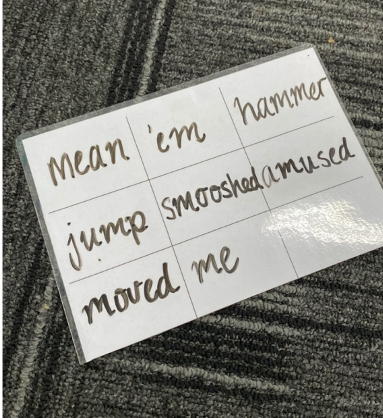 mean 'em hammer
jump smooshed amused
moved me